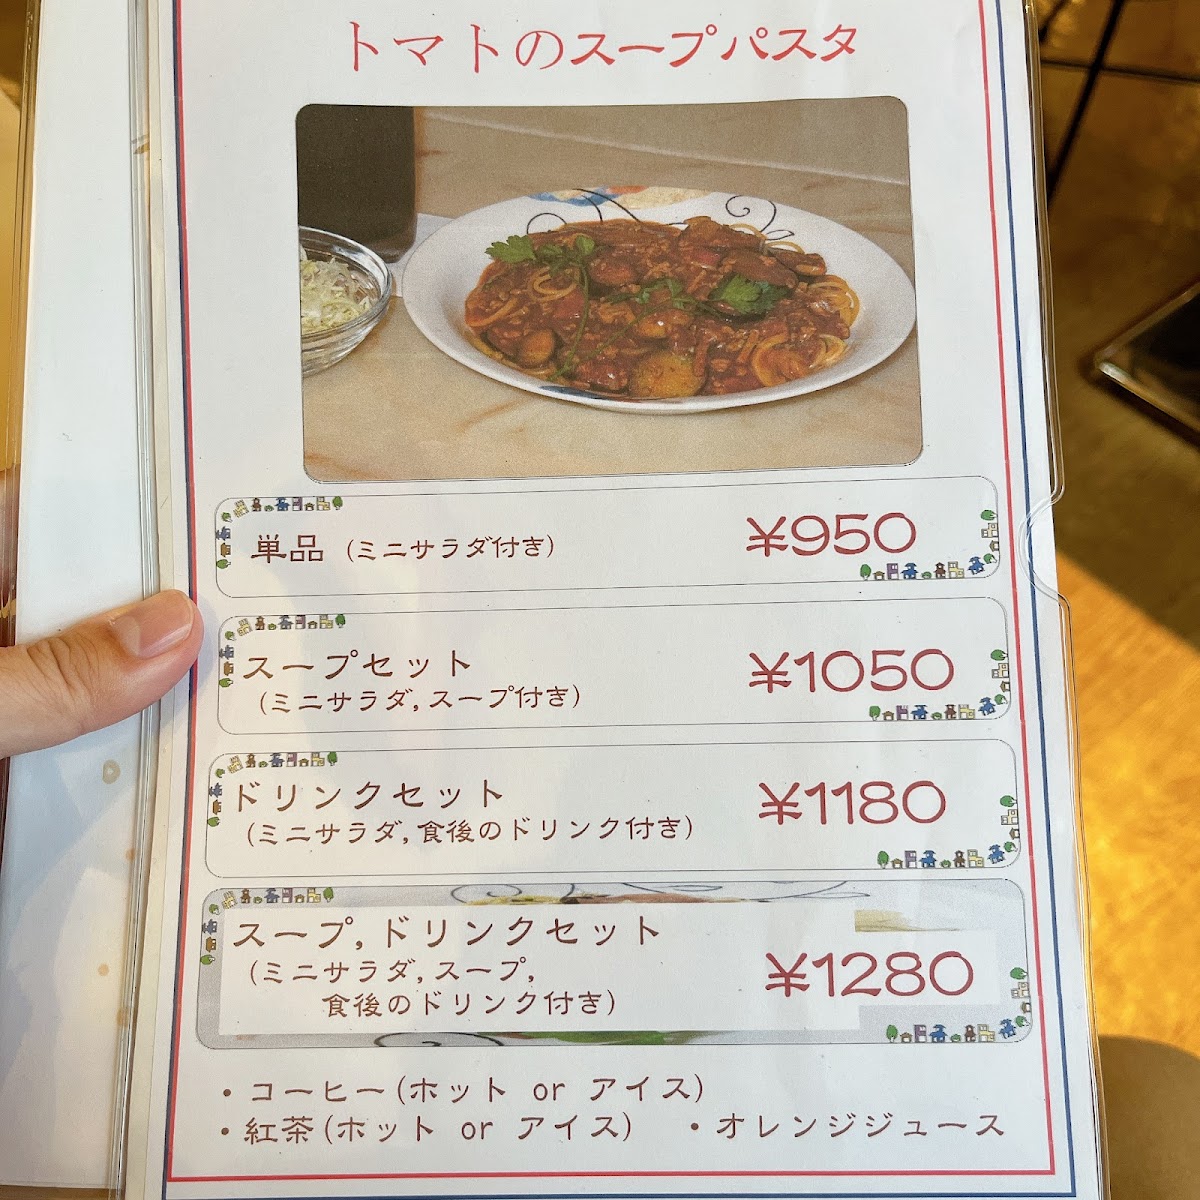 トマトのスープパスタ
単品 (ミニサラダ付き) ¥950
スープセット ¥1050
(ミニサラダ,スープ付き)
ドリンクセット ¥1180
(ミニサラダ,食後のドリンク付き)
スープ,ドリンクセット ¥1280
(ミニサラダ,スープ,
食後のドリンク付き)
・コーヒー(ホット or アイス)
・紅茶(ホット or アイス) ・オレンジジュース